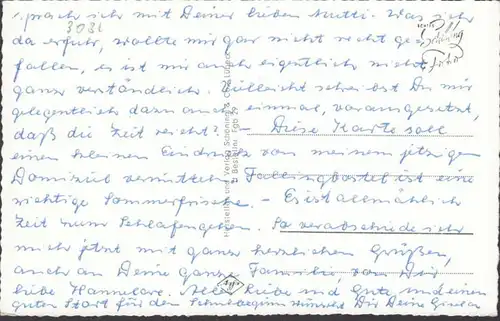 sprach ich mit Deiner lieben Mutti. Was ich
3031
da erfuhr, wollte mir gar nicht recht ge-
fallen, es ist mir auch eigentlich nicht
ganz verständlich. Vielleicht schreibst Du mir
gelegentlich dazu auch einmal, vorausgesetzt,
daß die Zeit reicht? - Diese Karte soll
einen kleinen Eindruck von meinem jetzigen
Domizil vermitteln. Fallingbostel ist eine
richtige Sommerfrische. - Es ist allmählich
Zeit zum Schlafengehen. So verabschiede ich
mich jetzt mit ganz herzlichen Grüßen,
auch an Deine ganze Familie, von Dir
liebe Hannelore. Alles Liebe und Gute und einen
guten Start für den Schulbeginn wünscht Dir Deine Gisela
Schöning
Foto
Hersteller und Verlag Schöning & Co., Lübeck
Bestellnr. Fgb 29
Agfa